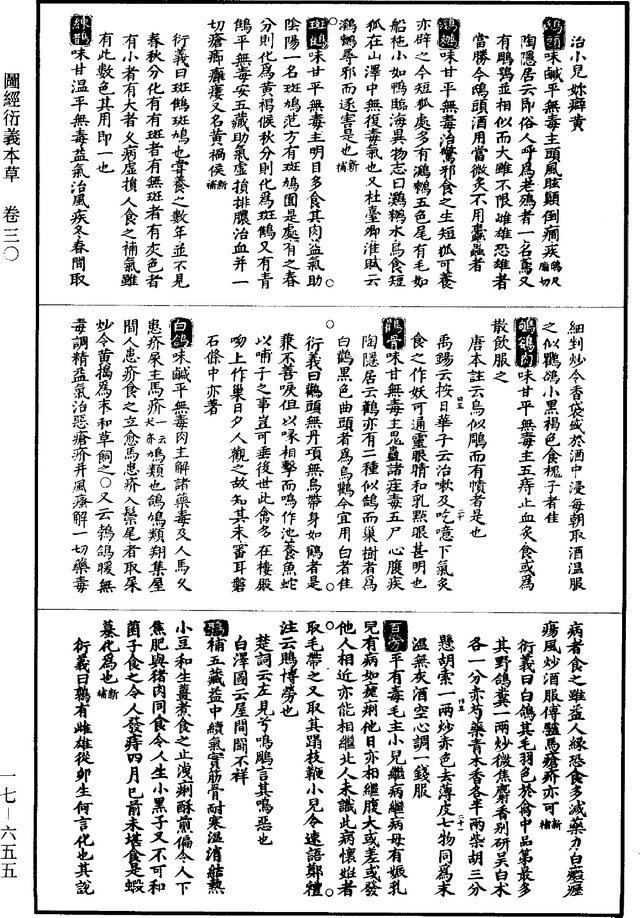 圖經衍義本草　卷三〇
治小兒妳癖黃
鴟頭味鹹平無毒主頭風眩顛倒癇疾鴟尺脂切
陶隱居云即俗人呼爲老鴉者一名鳶又
有鵰鶚並相似而大雖不限雌雄恐雄者
當勝今鴟頭酒用當微炙不用蠹蟲者
鸂鷘味甘平無毒治驚邪食之生短狐可養
亦辟之今短狐處多有鸂鷘五色尾有毛如
船柂小如鴨臨海異物志曰鸂鷘水鳥食短
狐在山澤中無復毒氣也又杜臺卿淮賦云
鸂鷘尋邪而逐害是也新補
斑鶴味甘平無毒主明目多食其肉益氣助
陰陽一名斑鳩范方有斑鳩圓是處有之春
分則化爲黃褐侯秋分則化爲斑鶴又有青
鶴平無毒安五藏助氣虛損排膿治血并一
切瘡癤癰瘻又名黃褐侯新補
衍義曰斑鶴斑鳩也嘗養之數年並不見
春秋分化有有斑者有無斑者有灰色者
有小者有大者久病虛損人食之補氣雖
有此數色其用即一也
練鵲味甘溫平無毒益氣治風疾冬春間取
細剉炒令香袋盛於酒中浸每朝取酒溫服
之似鸜鵒小黑褐色食槐子者佳
鸜鵒肉味甘平無毒主五痔止血炙食或爲
散飲服之
唐本註云鳥似鵙而有幘者是也
禹錫云按日華子云治嗽及吃噫下氣炙
食之作妖可通靈眼睛和乳點眼甚明也
鸛骨味甘無毒主鬼蠱諸疰毒五尸心腹疾
陶隱居云鸛亦有二種似鵠而巢樹者爲
白鸛黑色曲頭者爲烏鸛今宜用白者佳
衍義曰鸛頭無丹項無烏帶身如鶴者是
兼不善唳但以喙相擊而鳴作池養魚蛇
以哺子之事豈可垂後世此禽多在樓殿
吻上作巢日夕人觀之故知其未審耳礜
石條中亦著
白鴿味鹹平無毒肉主解諸藥毒及人馬久
患疥屎主馬疥一云犬疥鳩類也鴿鳩類翔集屋
間人患疥食之立愈馬患疥入鬃尾者取屎
炒令黃擣爲末和草飼之〇又云鵓鴿暖無
毒調精益氣治惡瘡疥并風瘙解一切藥毒
病者食之雖益人緣恐食多減藥力白癜瀝
瘍風炒酒服傅驢馬瘡疥亦可新補
衍義曰白鴿其毛羽色於禽中品第最多
其野鴿糞一兩炒微焦麝香別研吴白朮
各一分赤芍藥青木香各半兩柴胡三分
懸胡索一兩炒赤色去薄皮七物同爲末
溫無灰酒空心調一錢服
百勞平有毒毛主小兒繼病繼病母有娠乳
兒有病如瘧痢他日亦相繼腹大或差或發
他人相近亦能相繼北人未識此病懷姙者
取毛帶之又取其蹋枝鞭小兒令速語鄭禮
注云鵙博勞也
楚詞云左見兮鳴鵙言其鳴惡也
白澤圖云屋間鬭不祥
鶉補五藏益中續氣實筋骨耐寒溫消結熱
小豆和生薑煮食之止洩痢酥煎偏令人下
焦肥與猪肉同食令人生小黑子又不可和
菌子食之令人發痔四月已前未堪食是蝦
蟇化爲也新補
衍義曰鶉有雌雄從卵生何言化也其說
一七-六五五